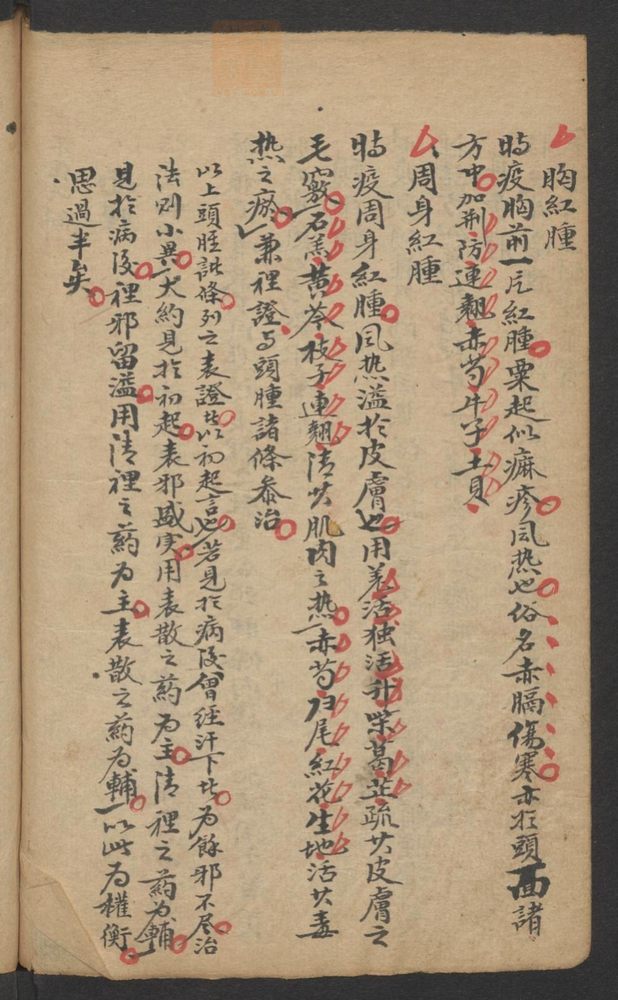 胸紅腫
時疫胸前一片紅腫粟起似痲疹風热也俗名赤膈傷寒亦於頭面諸
方中加荆防連翹赤芍牛子土貝
周身紅腫
時疫周身紅腫風热溢於皮膚也用羌活独活升柴葛芷疏其皮膚之
毛竅石羔黄芩枝子連翹清其肌肉之热赤芍归尾紅花生地活其毒
热之瘀兼裡證与頭腫諸條叅治
以上頭腫諸條列之表證皆以初起言也若見於病後曾經汗下比为餘邪不尽治
法则小異大約見於初起表邪盛实用表散之葯为主清裡之葯为輔
見於病後裡邪留溢用清裡之葯为主表散之葯为輔以此为權衡
思過半矣